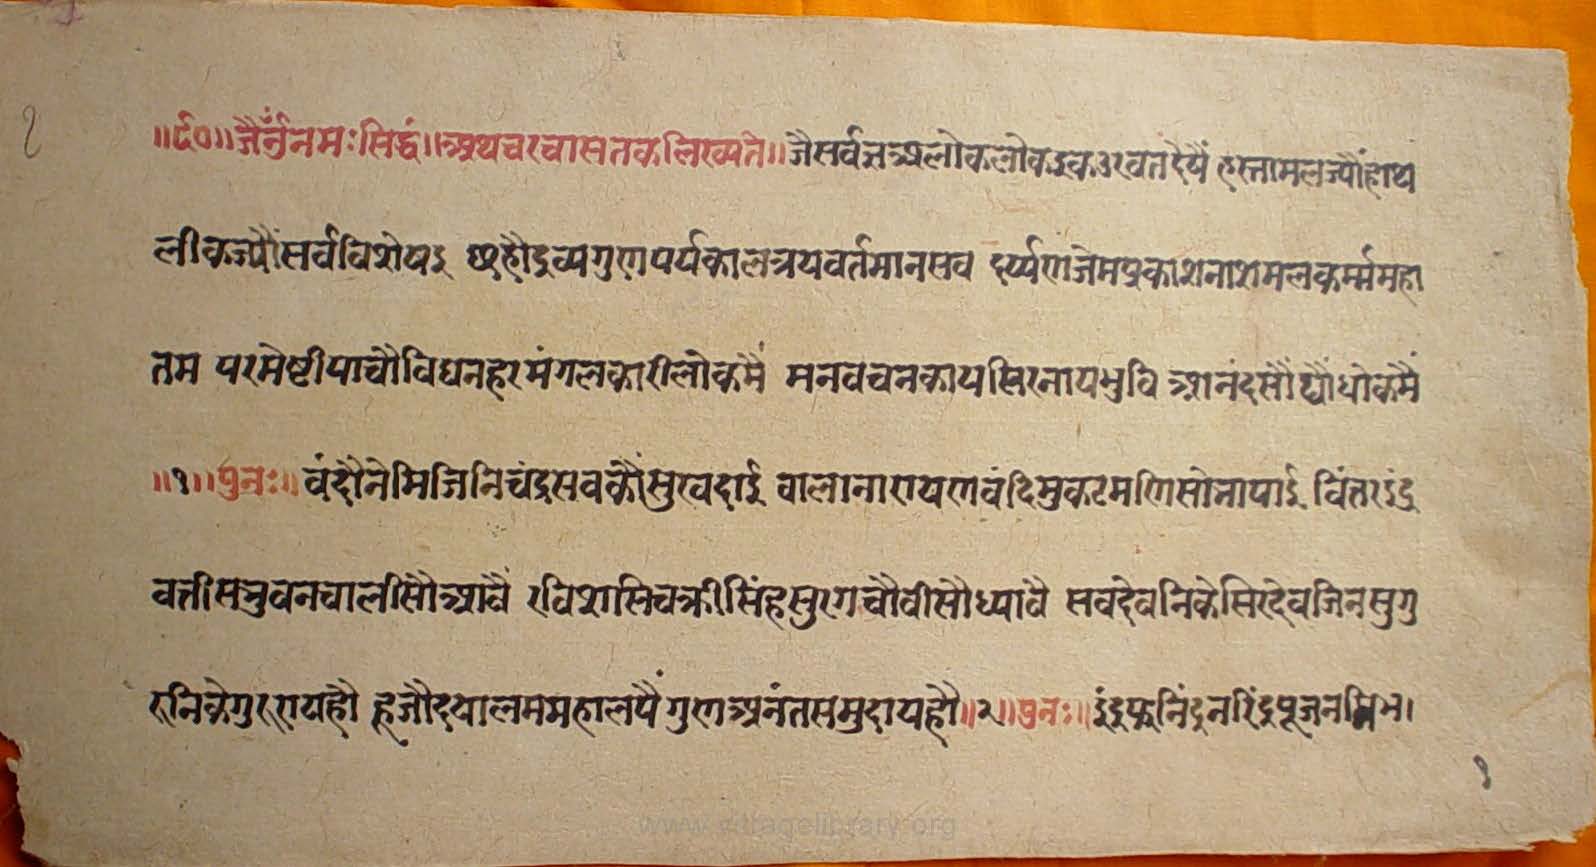 १
॥८०॥ जैनं नमः सिद्धं ॥ अथ चरचा सतक लिख्यते ॥ जै सर्वज्ञ अलोक लोक इक उडवत देषैं हस्तामल ज्यौं हाथ
लीक ज्यौं सर्व विशेषइ छहौ द्रव्य गुण पर्य काल त्रय वर्तमान सव दर्प्पण जेम प्रकाश नाश मल कर्म्म महा
तम परमेष्टी पाचौ विघन हर मंगलकारी लोकमैं मन वच न काय सिर नाय भुवि आनंदसौं द्यौं धोकमैं
॥१॥ पुनः ॥ वंदौ नेमि जिनिचंद सवकौं सुखदाई वाला नारायण वंदि मुकट मणि सोभा पाई विंतर इंद्र
वत्तीस भुवन चालीसौ आवैं रवि शसि चक्री सिंह सुरग चौवीसौ ध्यावै सव देवनिके सिरदेव जिन सुगु
रुनिके गुरराय हौ हूजौ दयाल मम हालपैं गुण अनंत समुदाय हौ ॥२॥ पुनः ॥ इंद्र फुनिंद्र नरिंद्र पूज नमि
१
www.vitragelibrary.org